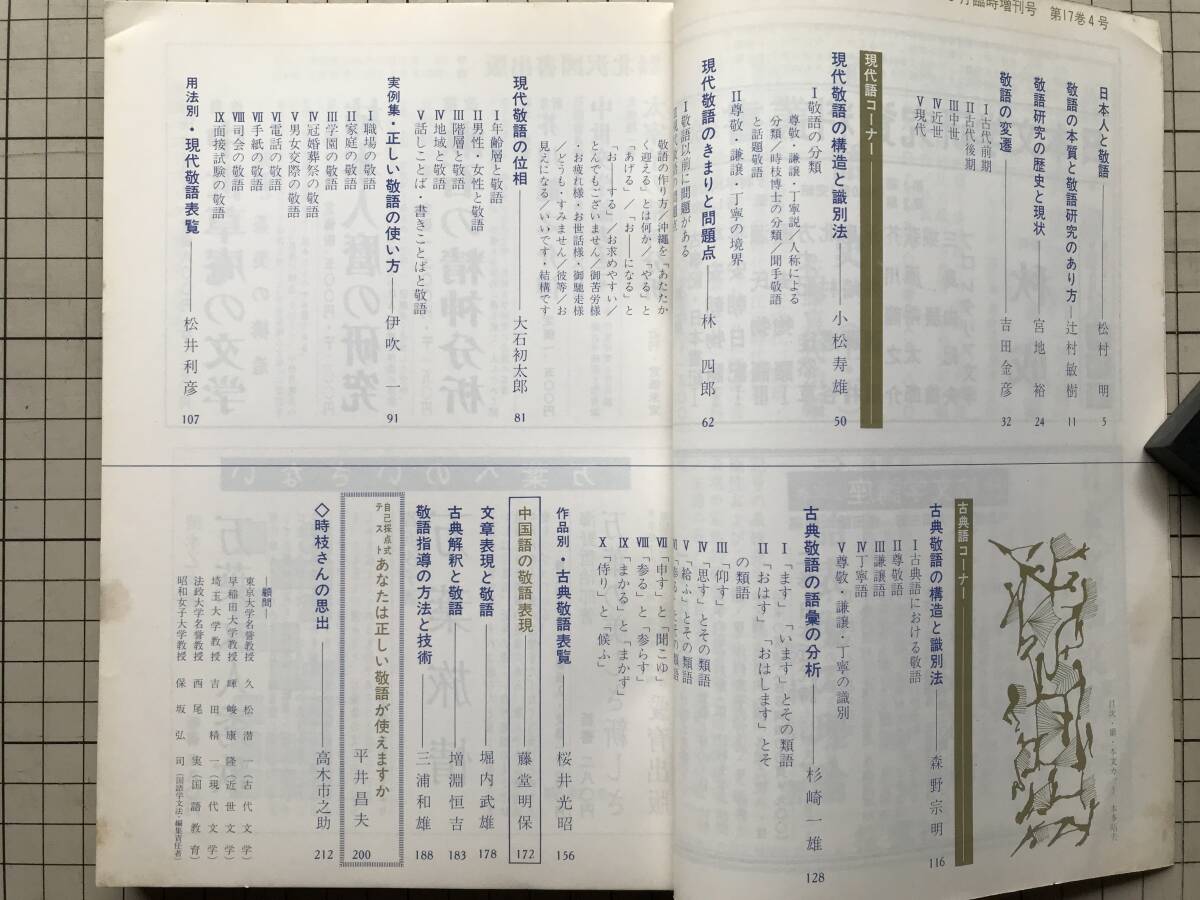 月臨時増刊号　第17巻4号
日本人と敬語――松村　明　5
敬語の本質と敬語研究のあり方――辻村敏樹　11
敬語研究の歴史と現状――宮地　裕　24
敬語の変遷――吉田金彦　32
Ⅰ古代前期
Ⅱ古代後期
Ⅲ中世
Ⅳ近世
Ⅴ現代
現代語コーナー
現代敬語の構造と識別法――小松寿雄　50
Ⅰ敬語の分類
尊敬・謙譲・丁寧説／人称による
分類／時枝博士の分類／聞手敬語
と話題敬語
Ⅱ尊敬・謙譲・丁寧の境界
現代敬語のきまりと問題点――林　四郎　62
Ⅰ敬語以前に問題がある
敬語の作り方／沖縄を「あたたか
く迎える」とは何か／「やる」と
「あげる」／「お――になる」と
「お――する」／お求めやすい／
とんでもございません／御苦労様
・お疲れ様・お世話様・御馳走様
／どうも・すみません／彼等／お
見えになる／いいです・結構です
現代敬語の位相――大石初太郎　81
Ⅰ年齢層と敬語
Ⅱ男性・女性と敬語
Ⅲ階層と敬語
Ⅳ地域と敬語
Ⅴ話しことば・書きことばと敬語
実例集・正しい敬語の使い方――伊吹　一　91
Ⅰ職場の敬語
Ⅱ家庭の敬語
Ⅲ学園の敬語
Ⅳ冠婚葬祭の敬語
Ⅴ男女交際の敬語
Ⅵ電話の敬語
Ⅶ手紙の敬語
Ⅷ司会の敬語
Ⅸ面接試験の敬語
用法別・現代敬語表覧――松井利彦　107
古典語コーナー
古典敬語の構造と識別法――森野宗明　116
Ⅰ古典語における敬語
Ⅱ尊敬語
Ⅲ謙譲語
Ⅳ丁寧語
Ⅴ尊敬・謙譲・丁寧の識別
古典敬語の語彙の分析――杉崎一雄　128
Ⅰ「ます」「います」とその類語
Ⅱ「おはす」「おはします」とそ
の類語
Ⅲ「仰す」
Ⅳ「思す」とその類語
Ⅴ「給ふ」とその類語
Ⅶ「申す」と「聞こゆ」
Ⅷ「参る」と「参らす」
Ⅸ「まかる」と「まかず」
Ⅹ「侍り」と「候ふ」
作品別・古典敬語表覧――桜井光昭　156
中国語の敬語表現――藤堂明保　172
文章表現と敬語――堀内武雄　178
古典解釈と敬語――増淵恒吉　183
敬語指導の方法と技術――三浦和雄　188
自己採点式
テスト　あなたは正しい敬語が使えますか　平井昌夫　200
◇時枝さんの思出――高木市之助　212
―顧問―
東京大学名誉教授　久松潜一（古代文学）
早稲田大学教授　暉峻康隆（近世文学）
埼玉大学教授　吉田精一（現代文学）
法政大学名誉教授　西尾　実（国語教育）
昭和女子大学教授　保坂弘司（国語学文法・編集責任者）